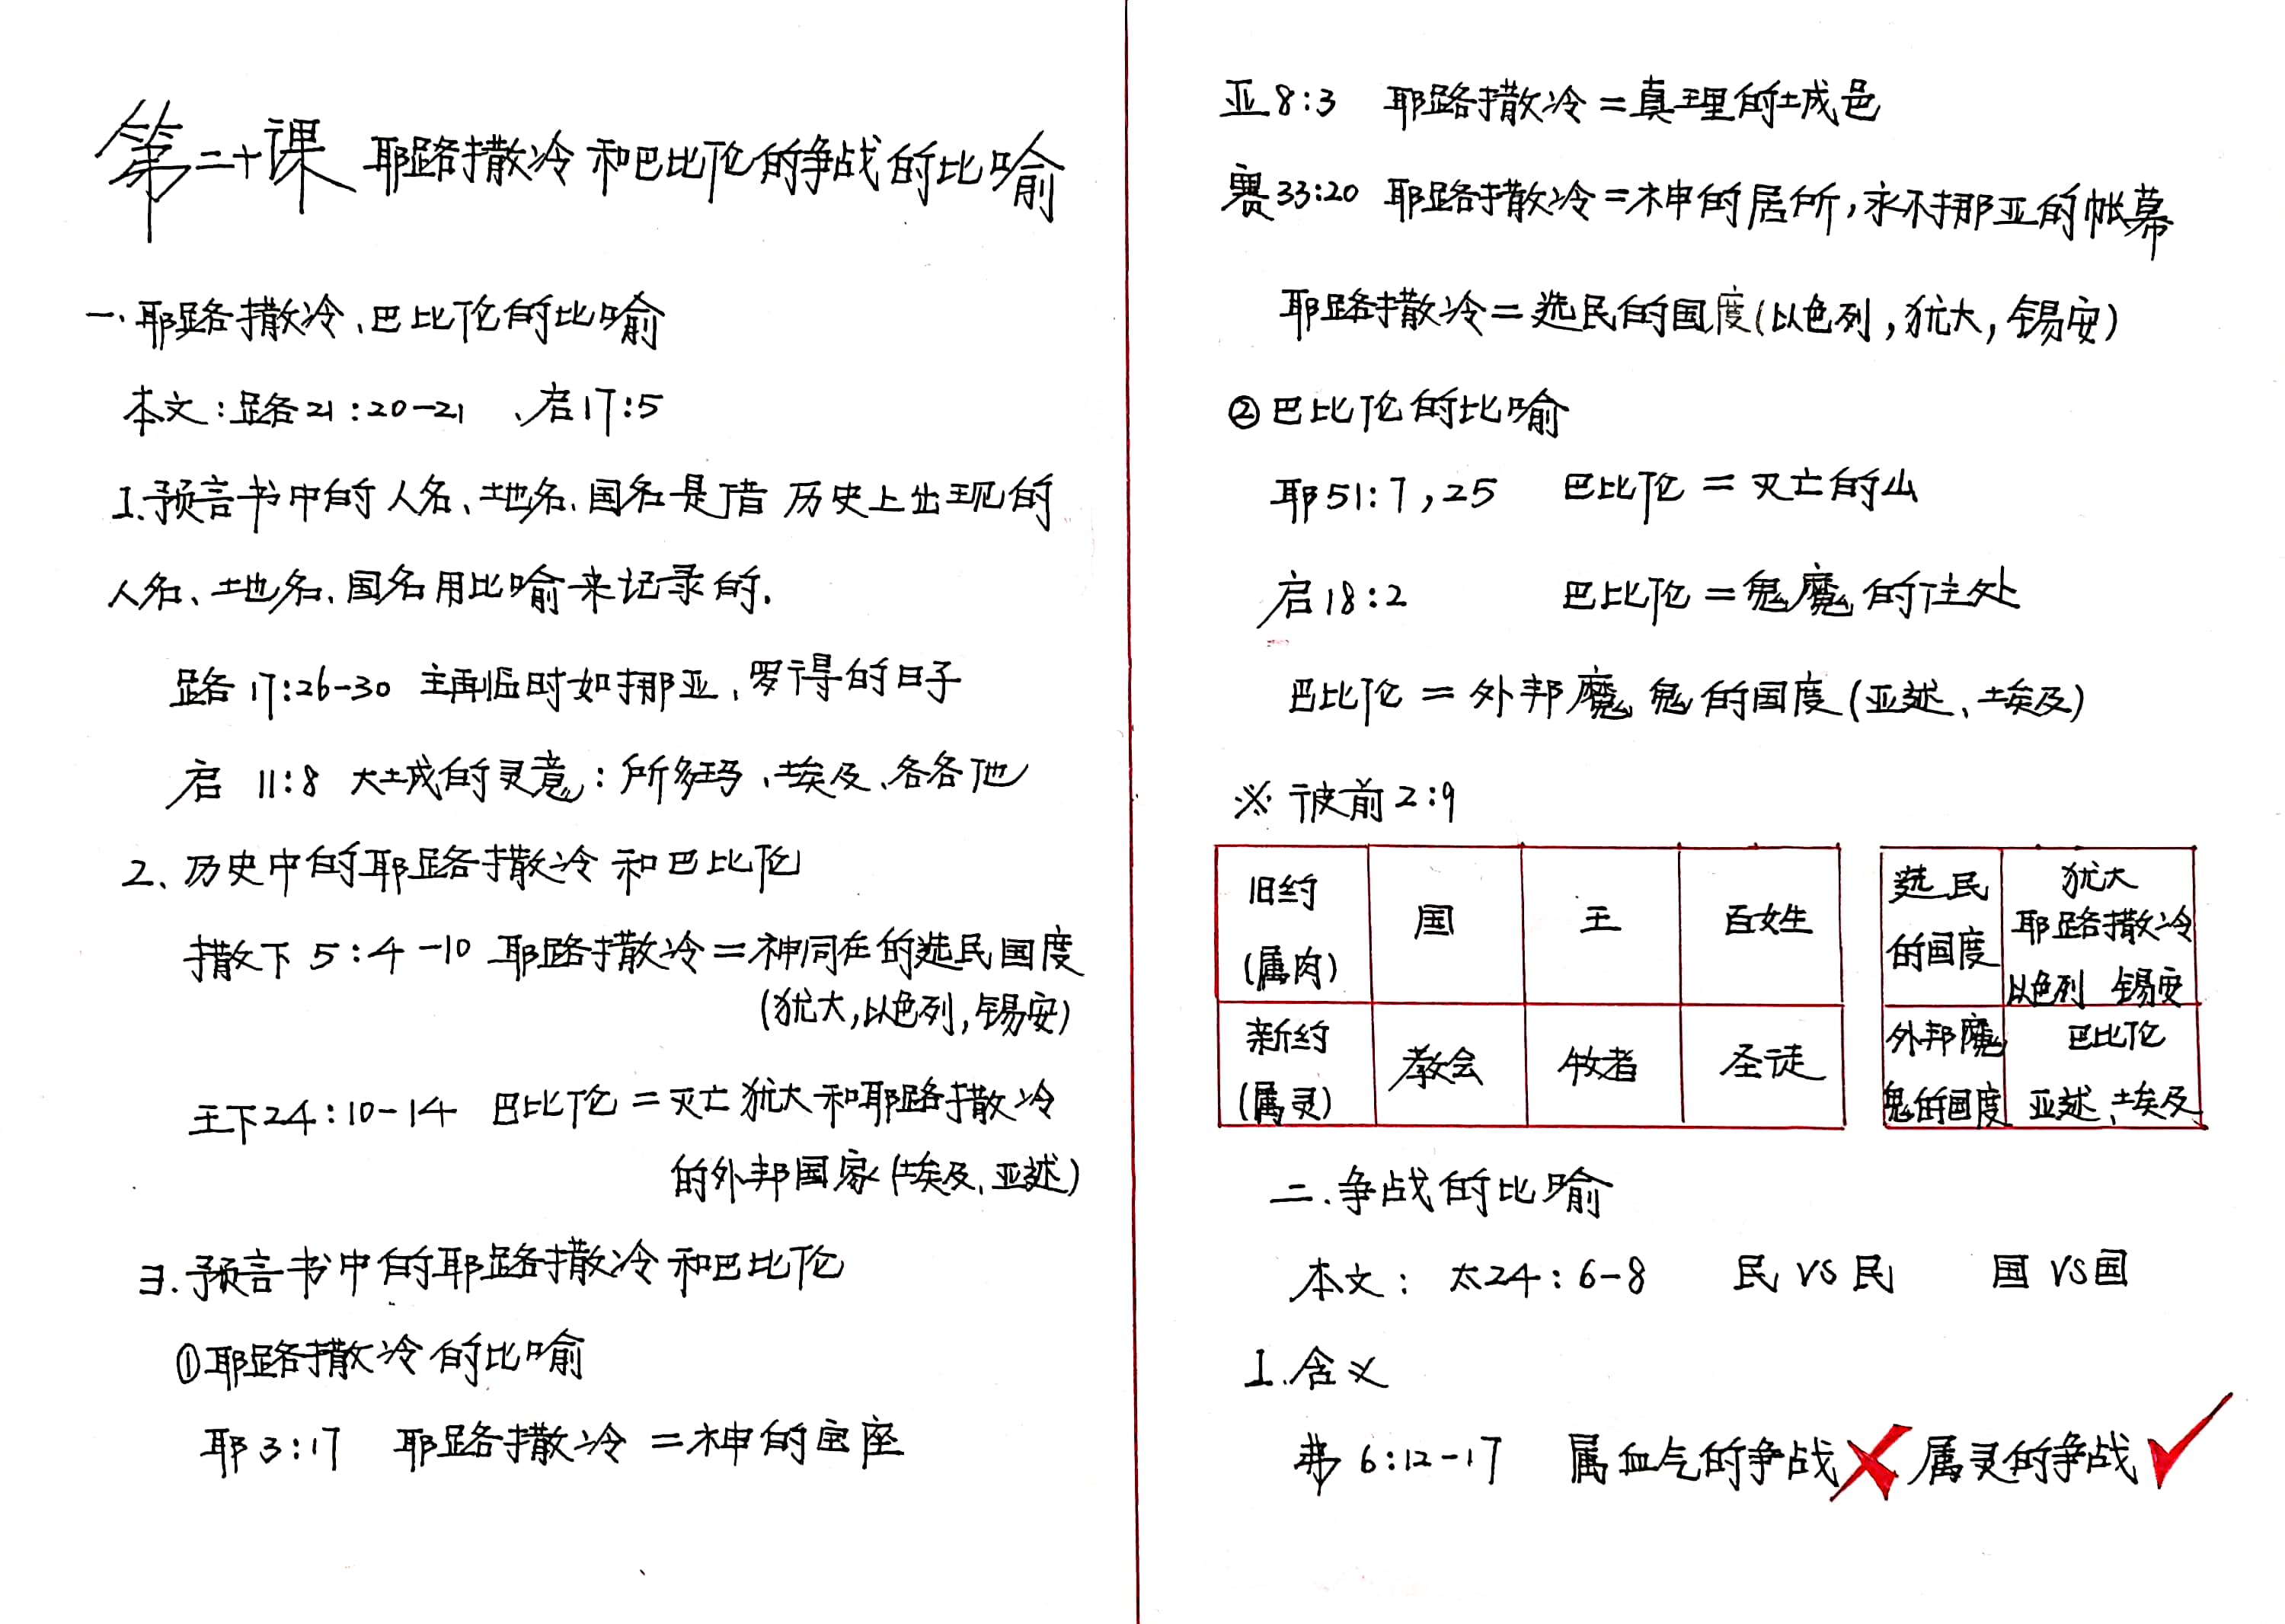 第二十课 耶路撒冷和巴比伦的争战的比喻
一、耶路撒冷、巴比伦的比喻
本文:路21:20-21 、启17:5
1.预言书中的人名、地名、国名是借历史上出现的
人名、地名、国名用比喻来记录的.
路17:26-30 主再临时如挪亚、罗得的日子
启 11:8 大城的灵意:所多玛、埃及、各各他
2、历史中的耶路撒冷和巴比伦
撒下 5:4-10 耶路撒冷=神同在的选民国度
(犹大,以色列,锡安)
王下24:10-14 巴比伦=灭亡犹大和耶路撒冷
的外邦国家(埃及、亚述)
3.预言书中的耶路撒冷和巴比伦
①耶路撒冷的比喻
耶3:17 耶路撒冷=神的宝座
亚8:3 耶路撒冷=真理的城邑
赛33:20 耶路撒冷=神的居所,永不挪亚的帐幕
耶路撒冷=选民的国度(以色列,犹大,锡安)
②巴比伦的比喻
耶51:7,25 巴比伦=灭亡的山
启18:2 巴比伦=鬼魔的住处
巴比伦=外邦魔鬼的国度(亚述、埃及)
※ 彼前2:9
旧约 国 王 百姓
(属肉)
新约 教会 牧者 圣徒
(属灵)
选民 犹大
的国度 耶路撒冷
以色列 锡安
外邦魔 巴比伦
鬼的国度 亚述、埃及
二、争战的比喻
本文: 太24:6-8 民VS民 国VS国
1.含义
弗6:12-17 属血气的争战✗ 属灵的争战✓